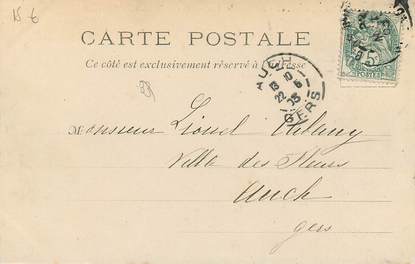 15 €
CARTE POSTALE
Ce côté est exclusivement réservé à l'adresse
POSTES
AUCH
13 10
22 5
05
GERS
Monsieur Lionel
Villa des Fleurs
Auch
Gers